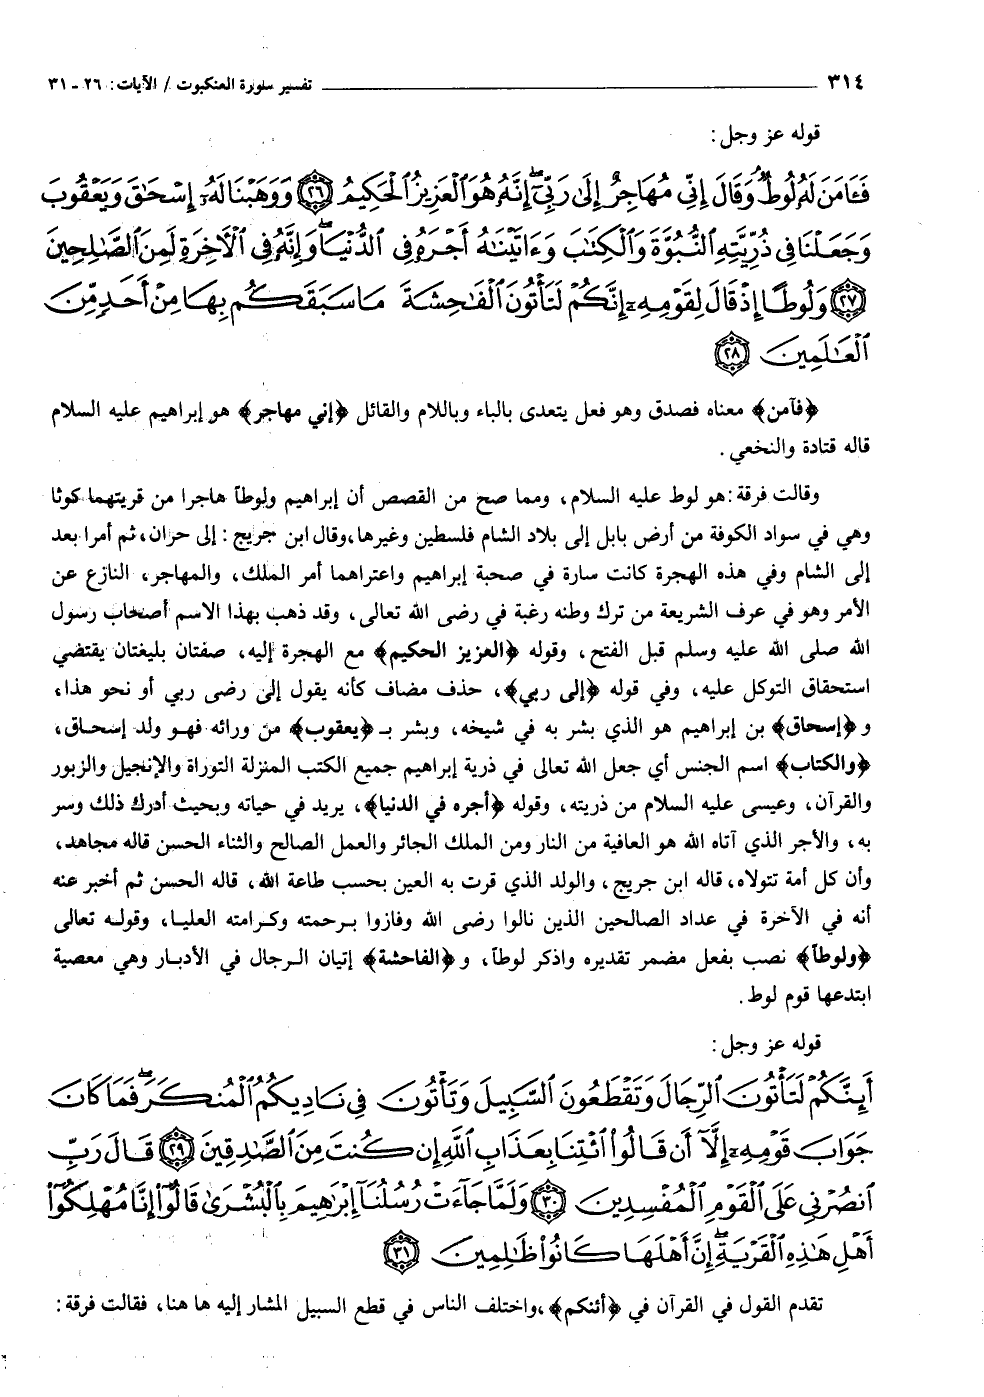 ٣١٤ ــــــــــــ تفسير سورة العنكبوت / الآيات: ٢٦ - ٣١
قوله عز وجل:
فَـَٔامَنَ لَهُۥ لُوطٌۘ وَقَالَ إِنِّى مُهَاجِرٌ إِلَىٰ رَبِّىٓۖ إِنَّهُۥ هُوَ ٱلْعَزِيزُ ٱلْحَكِيمُ ٢٦ وَوَهَبْنَا لَهُۥٓ إِسْحَٰقَ وَيَعْقُوبَ
وَجَعَلْنَا فِى ذُرِّيَّتِهِ ٱلنُّبُوَّةَ وَٱلْكِتَٰبَ وَءَاتَيْنَٰهُ أَجْرَهُۥ فِى ٱلدُّنْيَاۖ وَإِنَّهُۥ فِى ٱلْـَٔاخِرَةِ لَمِنَ ٱلصَّٰلِحِينَ
٢٧ وَلُوطًا إِذْ قَالَ لِقَوْمِهِۦٓ إِنَّكُمْ لَتَأْتُونَ ٱلْفَٰحِشَةَ مَا سَبَقَكُم بِهَا مِنْ أَحَدٍ مِّنَ
ٱلْعَٰلَمِينَ ٢٨
﴿فآمن﴾ معناه فصدق وهو فعل يتعدى بالباء وباللام والقائل ﴿إني مهاجر﴾ هو إبراهيم عليه السلام
قاله قتادة والنخعي.
وقالت فرقة: هو لوط عليه السلام، ومما صح من القصص أن إبراهيم ولوطاً هاجرا من قريتهما كوثا
وهي في سواد الكوفة من أرض بابل إلى بلاد الشام فلسطين وغيرها، وقال ابن جريج: إلى حران، ثم أمرا بعد
إلى الشام وفي هذه الهجرة كانت سارة في صحبة إبراهيم واعتراهما أمر الملك، والمهاجر، النازع عن
الأمر وهو في عرف الشريعة من ترك وطنه رغبة في رضى الله تعالى، وقد ذهب بهذا الاسم أصحاب رسول
الله صلى الله عليه وسلم قبل الفتح، وقوله ﴿العزيز الحكيم﴾ مع الهجرة إليه، صفتان بليغتان يقتضي
استحقاق التوكل عليه، وفي قوله ﴿إلى ربي﴾، حذف مضاف كأنه يقول إلى رضى ربي أو نحو هذا،
و﴿إسحاق﴾ بن إبراهيم هو الذي بشر به في شيخه، وبشر بـ ﴿يعقوب﴾ من ورائه فهو ولد إسحاق،
﴿والكتاب﴾ اسم الجنس أي جعل الله تعالى في ذرية إبراهيم جميع الكتب المنزلة التوراة والإنجيل والزبور
والقرآن، وعيسى عليه السلام من ذريته، وقوله ﴿أجره في الدنيا﴾، يريد في حياته وبحيث أدرك ذلك وسر
به، والأجر الذي آتاه الله هو العافية من النار ومن الملك الجائر والعمل الصالح والثناء الحسن قاله مجاهد،
وأن كل أمة تتولاه، قاله ابن جريج، والولد الذي قرت به العين بحسب طاعة الله، قاله الحسن ثم أخبر عنه
أنه في الآخرة في عداد الصالحين الذين نالوا رضى الله وفازوا برحمته وكرامته العليا، وقوله تعالى
﴿ولوطاً﴾ نصب بفعل مضمر تقديره واذكر لوطاً، و﴿الفاحشة﴾ إتيان الرجال في الأدبار وهي معصية
ابتدعها قوم لوط.
قوله عز وجل:
أَئِنَّكُمْ لَتَأْتُونَ ٱلرِّجَالَ وَتَقْطَعُونَ ٱلسَّبِيلَ وَتَأْتُونَ فِى نَادِيكُمُ ٱلْمُنكَرَۖ فَمَا كَانَ
جَوَابَ قَوْمِهِۦٓ إِلَّآ أَن قَالُوا۟ ٱئْتِنَا بِعَذَابِ ٱللَّهِ إِن كُنتَ مِنَ ٱلصَّٰدِقِينَ ٢٩ قَالَ رَبِّ
ٱنصُرْنِى عَلَى ٱلْقَوْمِ ٱلْمُفْسِدِينَ ٣٠ وَلَمَّا جَآءَتْ رُسُلُنَآ إِبْرَٰهِيمَ بِٱلْبُشْرَىٰ قَالُوٓا۟ إِنَّا مُهْلِكُوٓا۟
أَهْلِ هَٰذِهِ ٱلْقَرْيَةِۖ إِنَّ أَهْلَهَا كَانُوا۟ ظَٰلِمِينَ ٣١
تقدم القول في القرآن في ﴿أئنكم﴾، واختلف الناس في قطع السبيل المشار إليه ها هنا، فقالت فرقة: